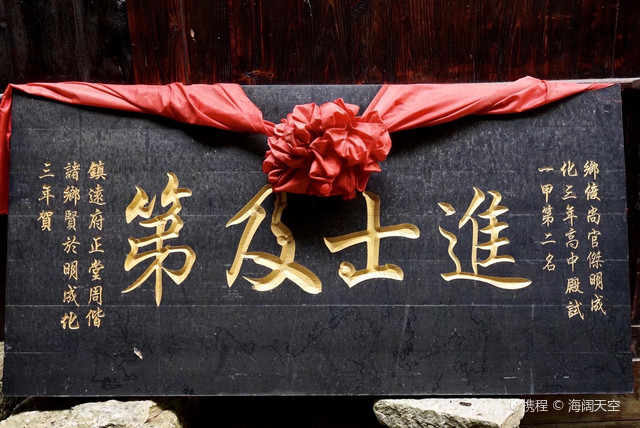 鄉俊尚官傑明成
化三年高中殿試
一甲第二名
進士及第
鎮遠府正堂周偕
諸鄉賢於明成化
三年賀
携程 © 海阔天空